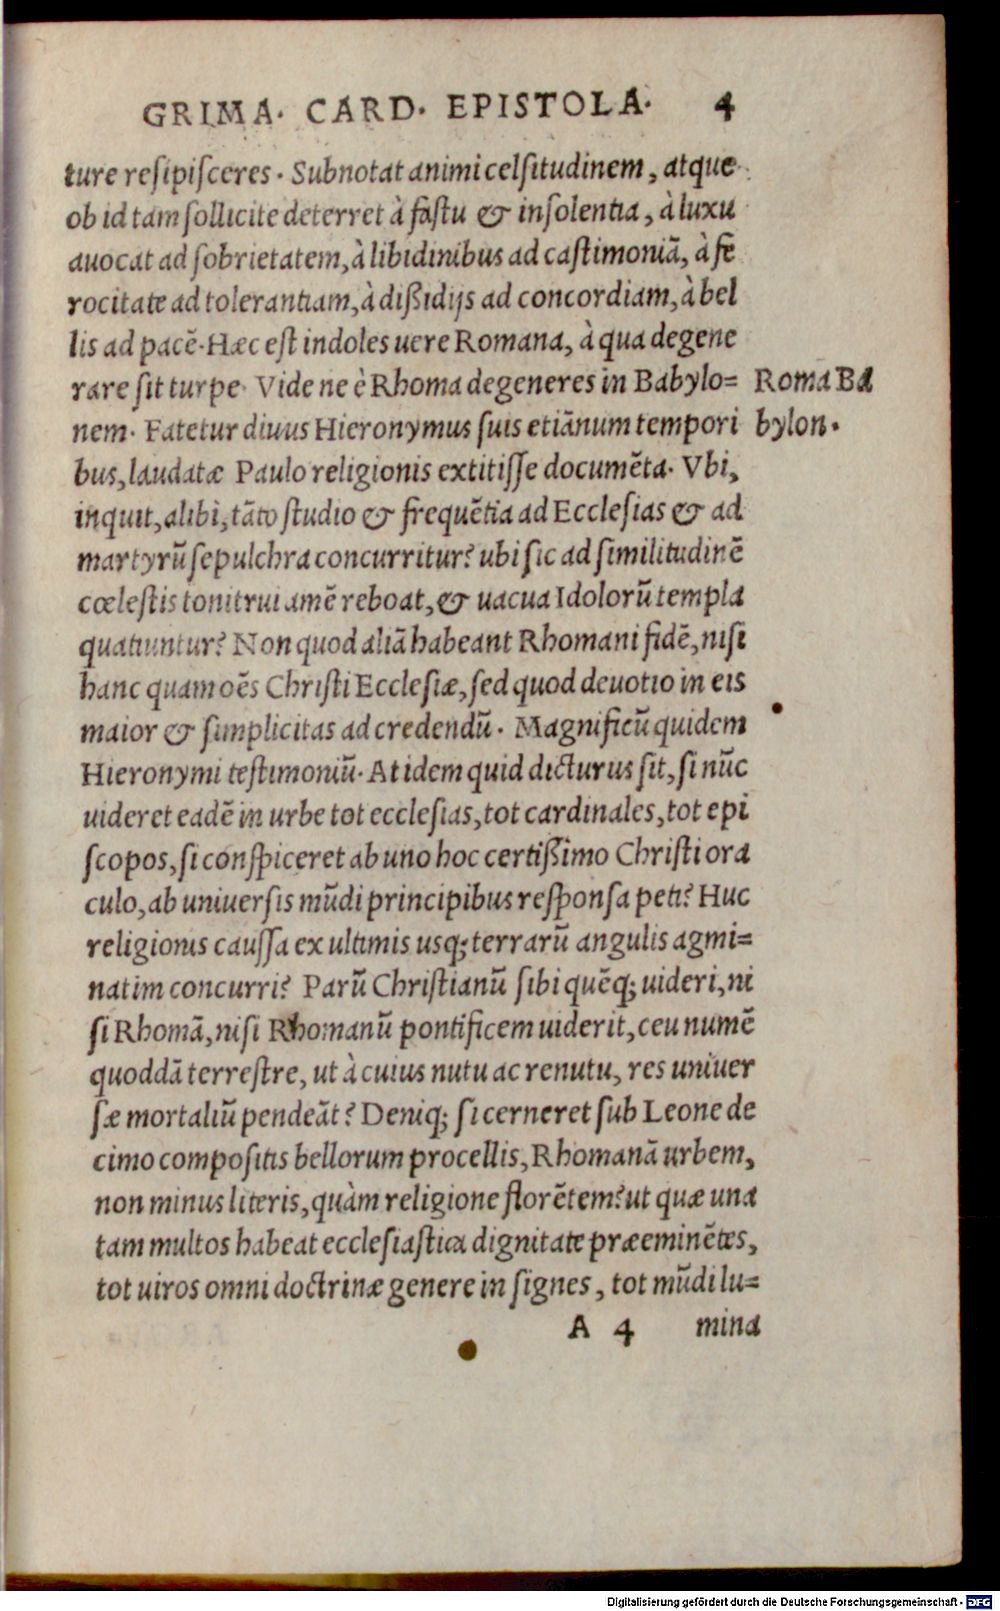 GRIMA. CARD. EPISTOLA. 4
ture resipisceres. Subnotat animi celsitudinem, atque
ob id tam sollicite deterret à fastu & insolentia, à luxu
auocat ad sobrietatem, à libidinibus ad castimoniā, à fe
rocitate ad tolerantiam, à dißidijs ad concordiam, à bel
lis ad pacē. Hæc est indoles uere Romana, à qua degene
rare sit turpe. Vide ne è Rhoma degeneres in Babylo=
Roma Ba
nem. Fatetur diuus Hieronymus suis etiānum tempori
bylon.
bus, laudatæ Paulo religionis extitisse documēta. Vbi,
inquit, alibi, tāto studio & frequētia ad Ecclesias & ad
martyrū sepulchra concurritur? ubi sic ad similitudinē
cœlestis tonitrui amē reboat, & uacua Idolorū templa
quatiuntur? Non quod aliā habeant Rhomani fidē, nisi
hanc quam oēs Christi Ecclesiæ, sed quod deuotio in eis
maior & simplicitas ad credendū. Magnificū quidem
Hieronymi testimoniū. At idem quid dicturus sit, si nūc
uideret eadē in urbe tot ecclesias, tot cardinales, tot epi
scopos, si conspiceret ab uno hoc certißimo Christi ora
culo, ab uniuersis mūdi principibus responsa peti? Huc
religionis caussa ex ultimis usq; terrarū angulis agmi=
natim concurri? Parū Christianū sibi quēq; uideri, ni
si Rhomā, nisi Rhomanū pontificem uiderit, ceu numē
quoddā terrestre, ut à cuius nutu ac renutu, res uniuer
sæ mortaliū pendeāt? Deniq; si cerneret sub Leone de
cimo compositis bellorum procellis, Rhomanā urbem,
non minus literis, quàm religione florētem? ut quæ una
tam multos habeat ecclesiastica dignitate præeminētes,
tot uiros omni doctrinæ genere in signes, tot mūdi lu=
A 4 mina
Digitalisierung gefördert durch die Deutsche Forschungsgemeinschaft - DFG